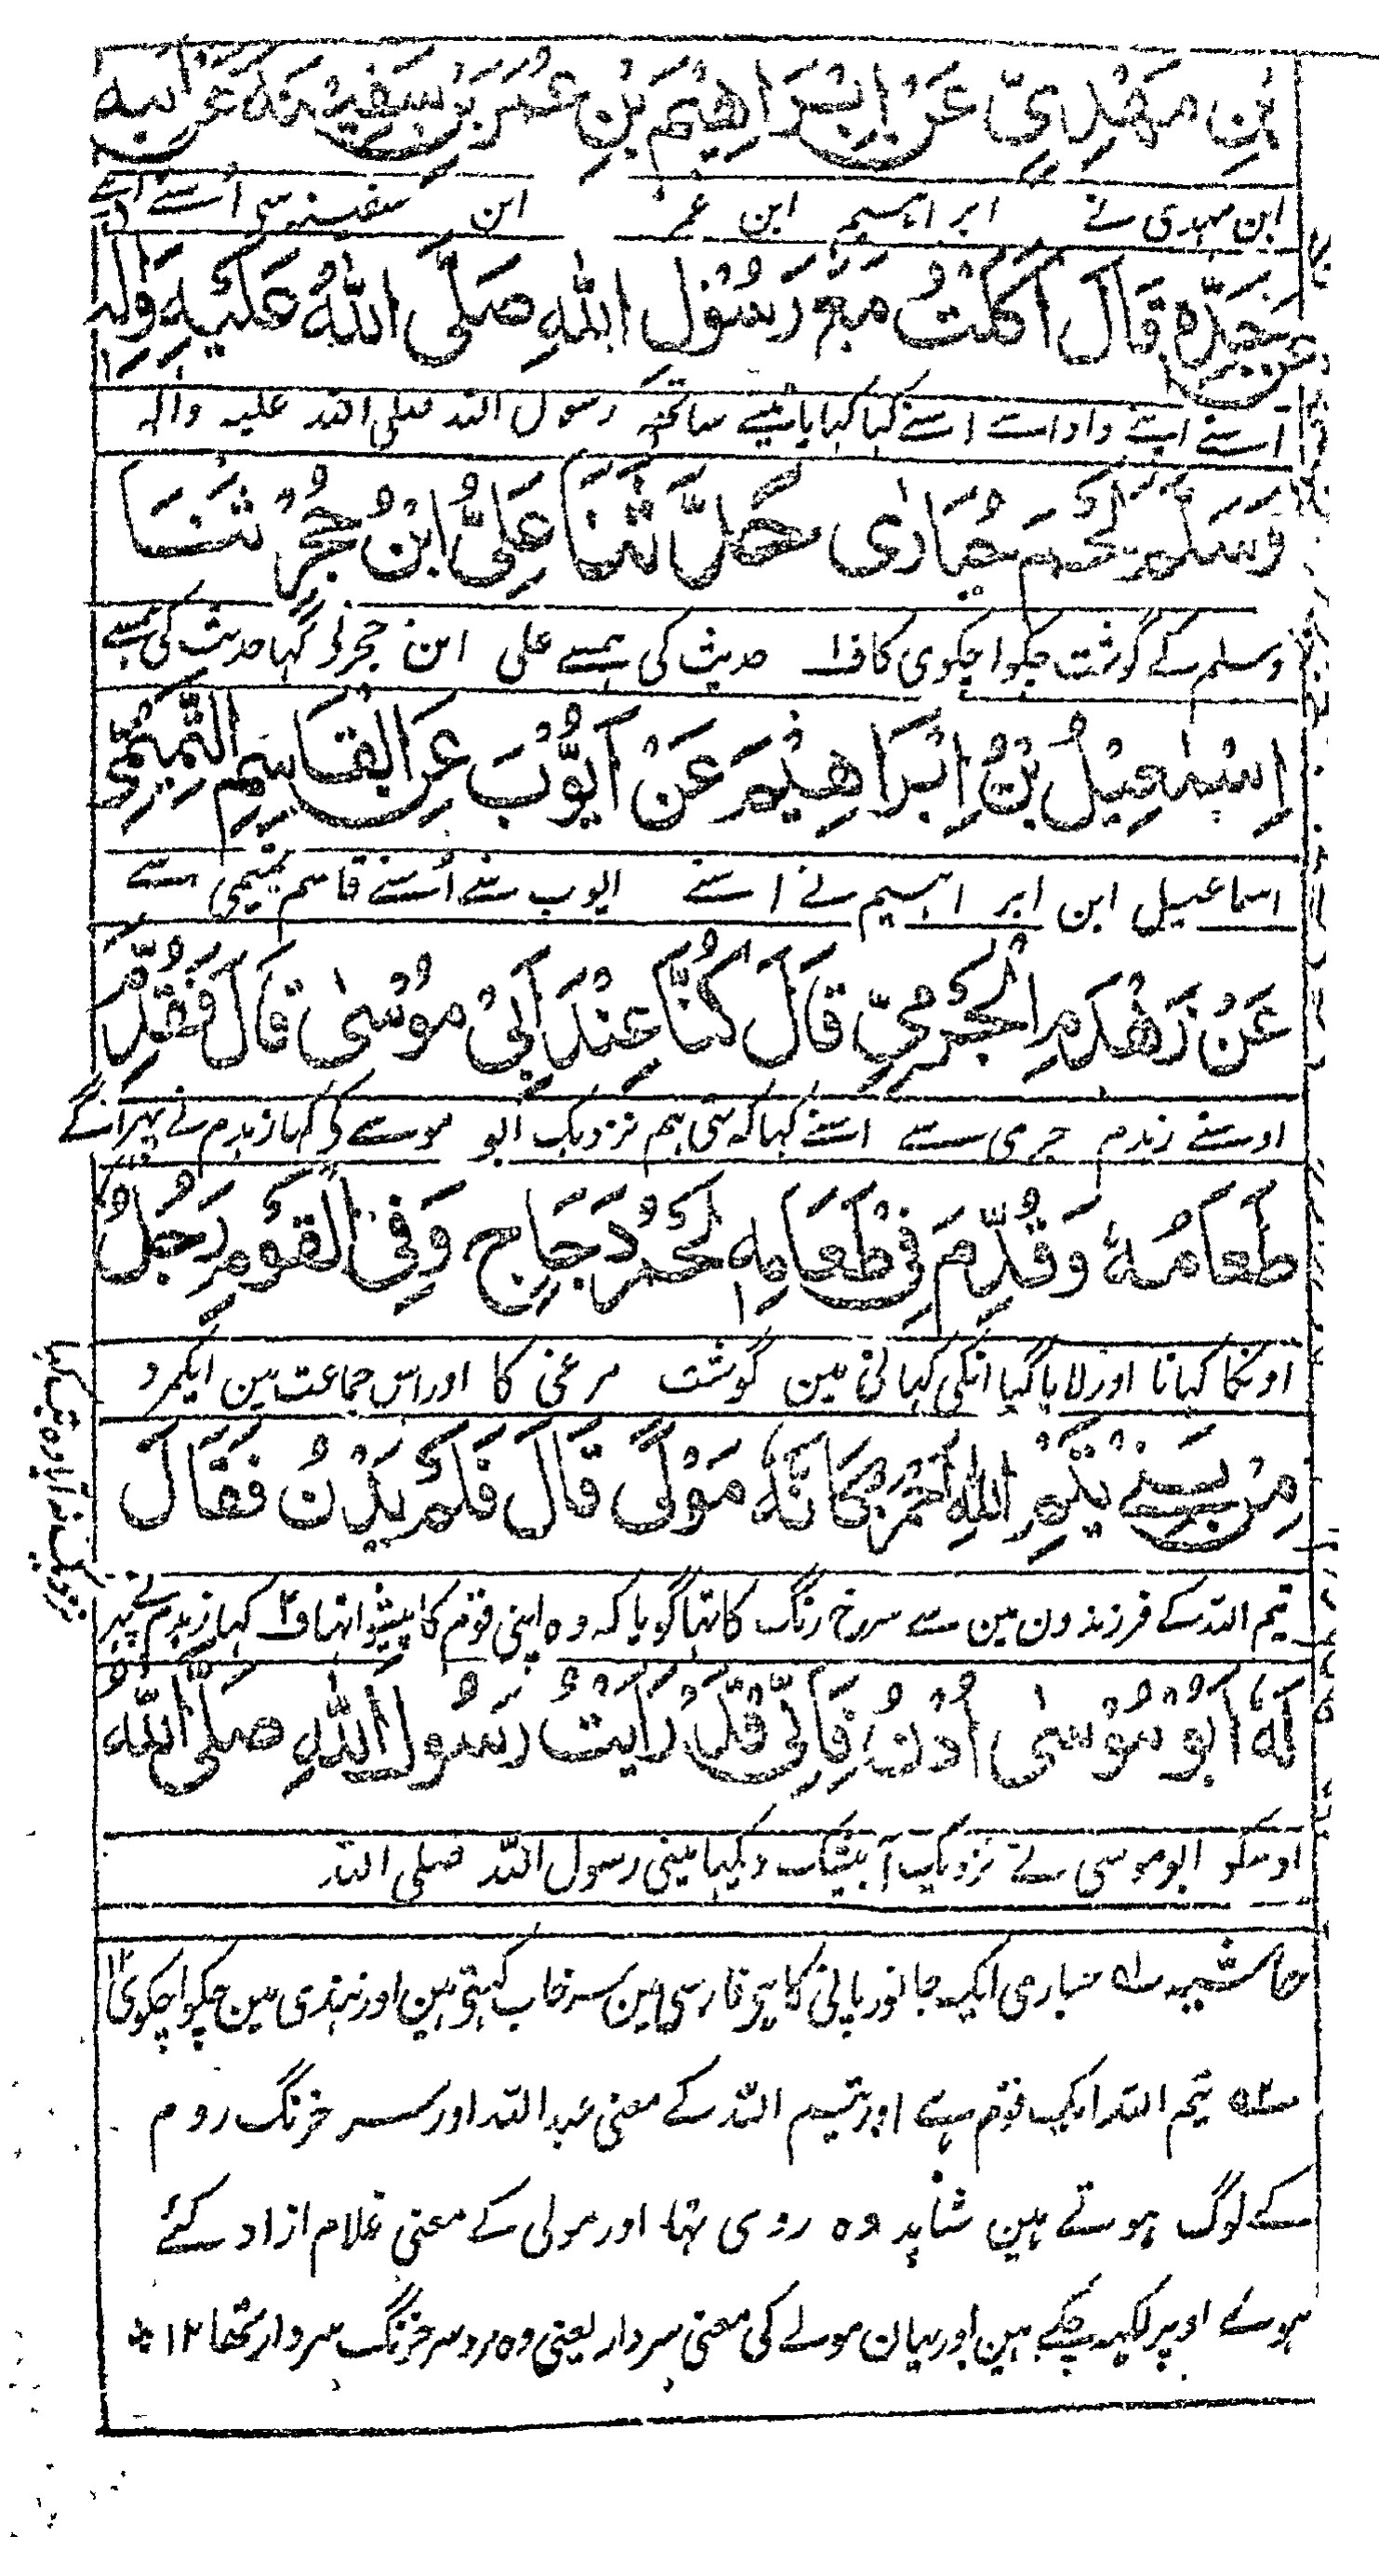 بْنِ مَهْدِيٍّ عَنْ اِبْرَاهِيْمَ بْنِ عُمَرَ بْنِ سَفِيْنَةَ عَنْ اَبِيهِ
ابن مہدی نے ابراہیم ابن عمر ابن سفینہ سی اُسنے اپنے
عَنْ جَدِّهٖ قَالَ اَكَلْتُ مَعَ رَسُوْلِ اللّٰهِ صَلَّى اللّٰهُ عَلَيْهِ وَاٰلِهٖ
اسنے اپنے دادا سے اسنے کہا کہایا مینے ساتھہ رسول اللہ صلی اللہ علیہ وآلہ
وَسَلَّمَ لَحْمَ حُبَارٰى حَدَّثَنَا عَلِيُّ ابْنُ حُجْرٍ ثَنَا
وسلم کے گوشت چکوا چکوی کا ف۱ حدیث کی ہمسے علی ابن حجر نے کہا حدیث کی ہمسے
اِسْمٰعِيْلُ بْنُ اِبْرَاهِيْمَ عَنْ اَيُّوْبَ عَنِ الْقَاسِمِ التَّمِيْمِيِّ
اسماعیل ابن ابراہیم نے اسنے ایوب سے اُسنے قاسم تمیمی سے
عَنْ زَهْدَمِ الْجَرْمِيِّ قَالَ كُنَّا عِنْدَ اَبِيْ مُوْسٰى قَالَ فَقُدِّمَ
اوسنے زہدم جرمی سے اسنے کہا کہ تہی ہم نزدیک ابو موسے کی کہا زہدم نے پہر آگے
طَعَامُهٗ وَقُدِّمَ فِيْ طَعَامِهٖ لَحْمُ دَجَاجٍ وَفِي الْقَوْمِ رَجُلٌ
اونکا کہانا اور لایا گیا انکی کہانی مین گوشت مرغی کا اور اس جماعت مین ایکمرد
مِنْ بَنِيْ تَيْمِ اللّٰهِ اَحْمَرُ كَاَنَّهٗ مَوْلًى قَالَ فَلَمْ يَدْنُ فَقَالَ
تیم اللہ کے فرزندون مین سے سرخ رنگ کا تہا گویا کہ وہ اپنی قوم کا پیشوا تہا ف۲ کہا زہدم نے پہر
نزدیک نہ آیا وہ تب کہا
لَهٗ اَبُوْ مُوْسٰى اُدْنُ فَاِنِّيْ قَدْ رَاَيْتُ رَسُوْلَ اللّٰهِ صَلَّى اللّٰهُ
اوسکو ابو موسی نے نزدیک آ بیشک دیکہا مینی رسول اللہ صلی اللہ
حاشیہ ف۱ حباری ایک جانور پانی کا ہی فارسی مین سرخاب کہتی ہین اور ہندی مین چکوا چکوی ۱۲
ف۲ تیم اللہ ایک قوم ہے اور تیم اللہ کے معنی عبد اللہ اور سرخرنگ روم
کے لوگ ہوتے ہین شاید وہ رومی تہا اور مولی کے معنی غلام ازاد کئے
ہوے اوپر لکہہ چکے ہین اور یہان مولے کی معنی سردار یعنی وہ مرد سرخرنگ سردار تھا ۱۲ *